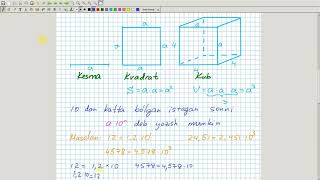 a
a
a
a
a
4
4
a
4
Kesma
Kvadrat
Kub
S = a·a = a²
V = a·a·a = a³
10 dan katta bo'lgan istagan sonni
a·10ⁿ deb yozish mumkin
Masalan: 12 = 1,2·10¹
24,51 = 2,451·10¹
4578 = 4,578·10³
12 = 1,2 × 10
4578 = 4,578·10
1,2·10 = 12